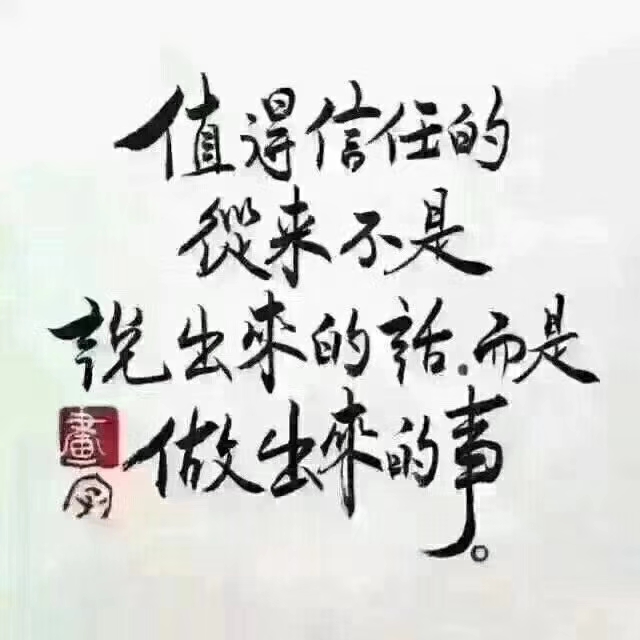 值得信任的
從来不是
説出來的話.而是
做出來的事。
畫字